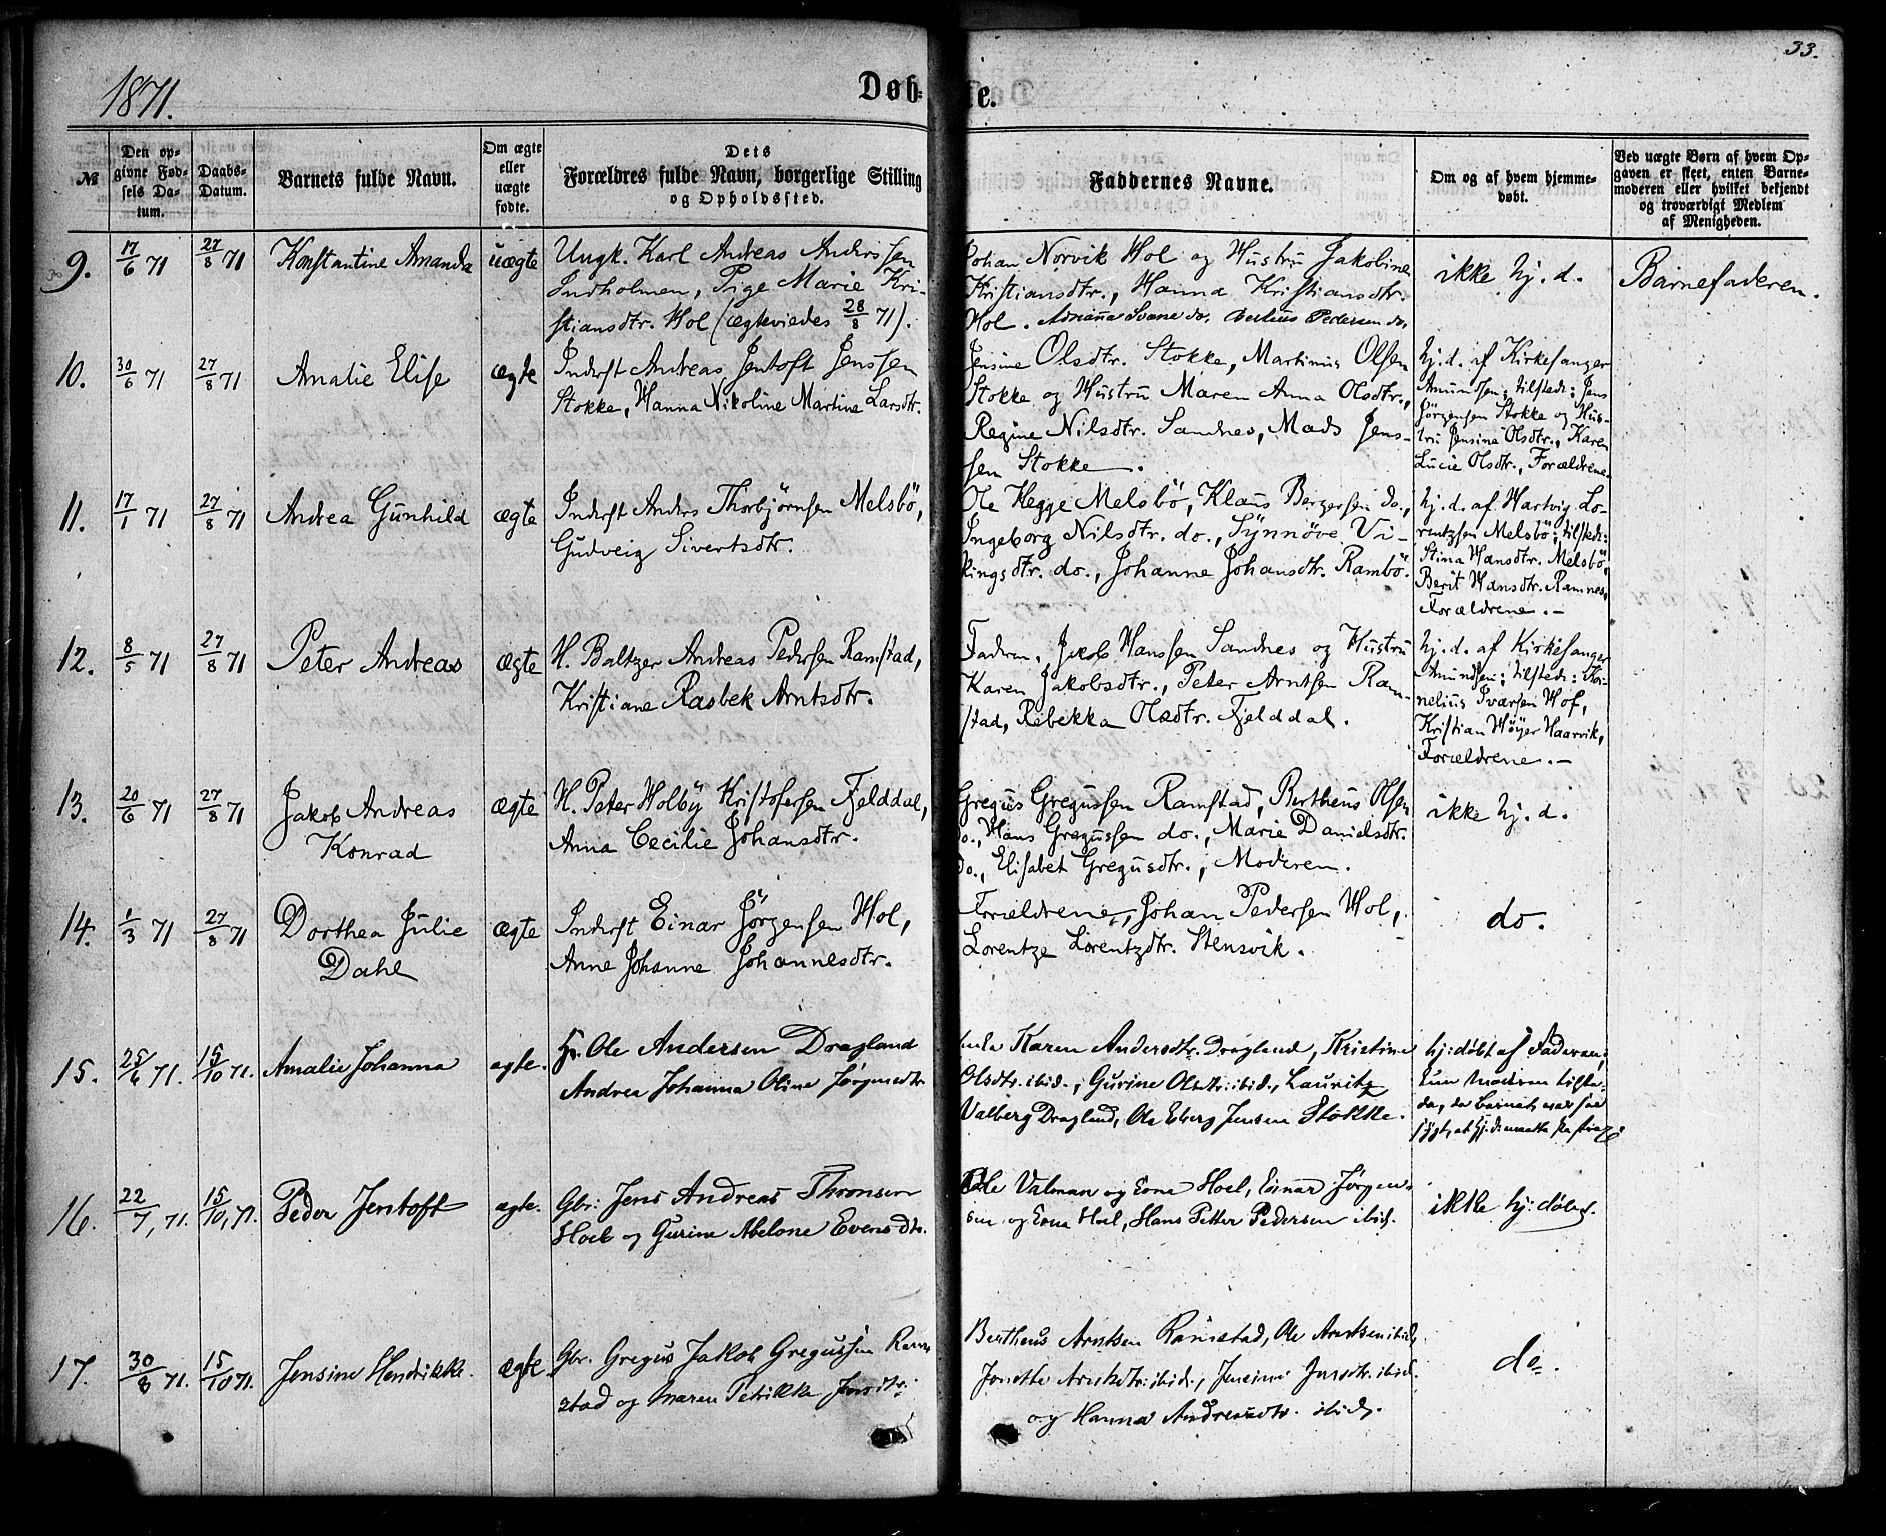 33.
1871.
Døb-
te.
№
Den op-
givne Fød-
sels Da-
tum.
Daabs-
Datum.
Barnets fulde Navn.
Om ægte
eller
uægte
fødte.
Dets
Forældres fulde Navn, borgerlige Stilling
og Opholdssted.
Faddernes Navne.
Om og af hvem hjemme-
døbt.
Ved uægte Børn af hvem Op-
gaven er skeet, enten Barne-
moderen eller hvilket bekjendt
og troværdigt Medlem
af Menigheden.
9.
17/6 71
27/8 71
Konstantine Amanda
uægte
Ungk. Karl Andreas Anderssen
Indholmen, Pige Marie Kri-
stiansdtr. Hol (ægteviedes 28/8 71).
Johan Norvik Hol og Hustru Jakobine
Kristiansdtr., Hanna Kristiansdtr.
Hol. Adriana Svane do, Bertheus Pedersen do.
ikke hj. d.
Barnefaderen.
10.
30/6 71
27/8 71
Amalie Elise
ægte
Inderst Andreas Jentoft Jenssen
Stokke, Hanna Nikoline Martine Larsdtr.
Jensine Olsdtr. Stokke, Martinus Olsen
Stokke og Hustru Maren Anna Olsdtr.,
Regine Nilsdtr. Sandnes, Mads Jens-
sen Stokke.
hj. d. af Kirkesanger
Amundsen; tilstede: Jens
Jörgensen Stokke og Hus-
tru Jensine Olsdtr., Karen
Lucie Olsdtr., Forældrene.
11.
17/1 71
27/8 71
Andrea Gunhild
ægte
Inderst Anders Thorbjörnsen Melsbö,
Gudveig Sivertsdtr.
Ole Hegge Melsbö, Klaus Bergersen do.,
Ingeborg Nilsdtr. do., Synnöve Vi-
kingsdtr. do., Johanne Johansdtr. Rambö.
hj. d. af Hartvig Lo-
rentzsen Melsbö; tilstede:
Stina Hansdtr. Melsbö,
Berit Hansdtr. Ramnes,
Forældrene. -
12.
8/5 71
27/8 71
Peter Andreas
ægte
H. Baltzer Andreas Pedersen Ramstad,
Kristiane Rasbek Arntsdtr.
Faderen, Jakob Hanssen Sandnes og Hustru
Karen Jakobsdtr., Peter Arntsen Ram-
stad, Rebekka Olsdtr. Fjelddal.
hj. d. af Kirkesanger
Amundsen; tilstede: Kor-
nelius Ivarsen Hof,
Kristian Höyer Haarvik,
Forældrene. -
13.
20/6 71
27/8 71
Jakob Andreas
Konrad
ægte
H. Peter Holby Kristofersen Fjelddal,
Anna Cecilie Johansdtr.
Gregus Gregussen Ramstad, Bertheus Olsen
do., Hans Gregussen do., Marie Danielsdtr.
do., Elisabet Gregusdtr., Moderen.
ikke hj. d.
14.
1/3 71
27/8 71
Dorthea Julie
Dahl
ægte
Inderst Einar Jörgensen Hol,
Anne Johanne Johannesdtr.
Forældrene, Johan Pedersen Hol,
Lorentze Lorentzdtr. Stensvik.
do.
15.
25/6 71.
15/10 71.
Amalie Johanna
ægte.
Ole Andersen Dragland
Andrea Johanna Oline Jørgensdtr
Karen Andersdtr. Dragland, Kristine
Olsdtr. ibid., Gurine Olsdtr. ibid., Lauritz
Valberg Dragland, Ole Eberg Jensen Stokke.
hj: døbt af Faderen,
kun Modren tilste-
de, da Barnet var saa
sygt, at hj. d. maatte
16.
22/7, 71.
15/10, 71.
Peder Jentoft
ægte.
Gbr: Jens Andreas Thronsen
Hoel og Gurine Abelone Evensdtr.
Ole Valman og Kone Hoel, Einar Jørgen-
sen og Kone Hoel, Hans Petter Pedersen ibid.
ikke hj: døbt.
17.
30/8 71.
15/10 71.
Jensine Hendrikke.
ægte.
Gbr. Gregus Jakob Gregussen Ram-
stad og Maren Petrikke
Bertheus Arntsen Ramstad, Ole Arntsen ibid,
Jonette Arntsdtr. ibid., Jensine Jensdtr. ibid.
og Hanna Andreasdtr. ibid.
do.